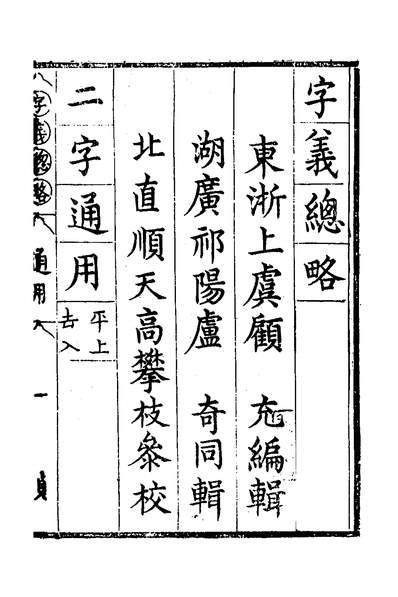 字義總略
東浙上虞顧　充編輯
湖廣祁陽盧　奇同輯
北直順天高攀枝叅校
二字通用
平上
去入
字義總略
通用
一